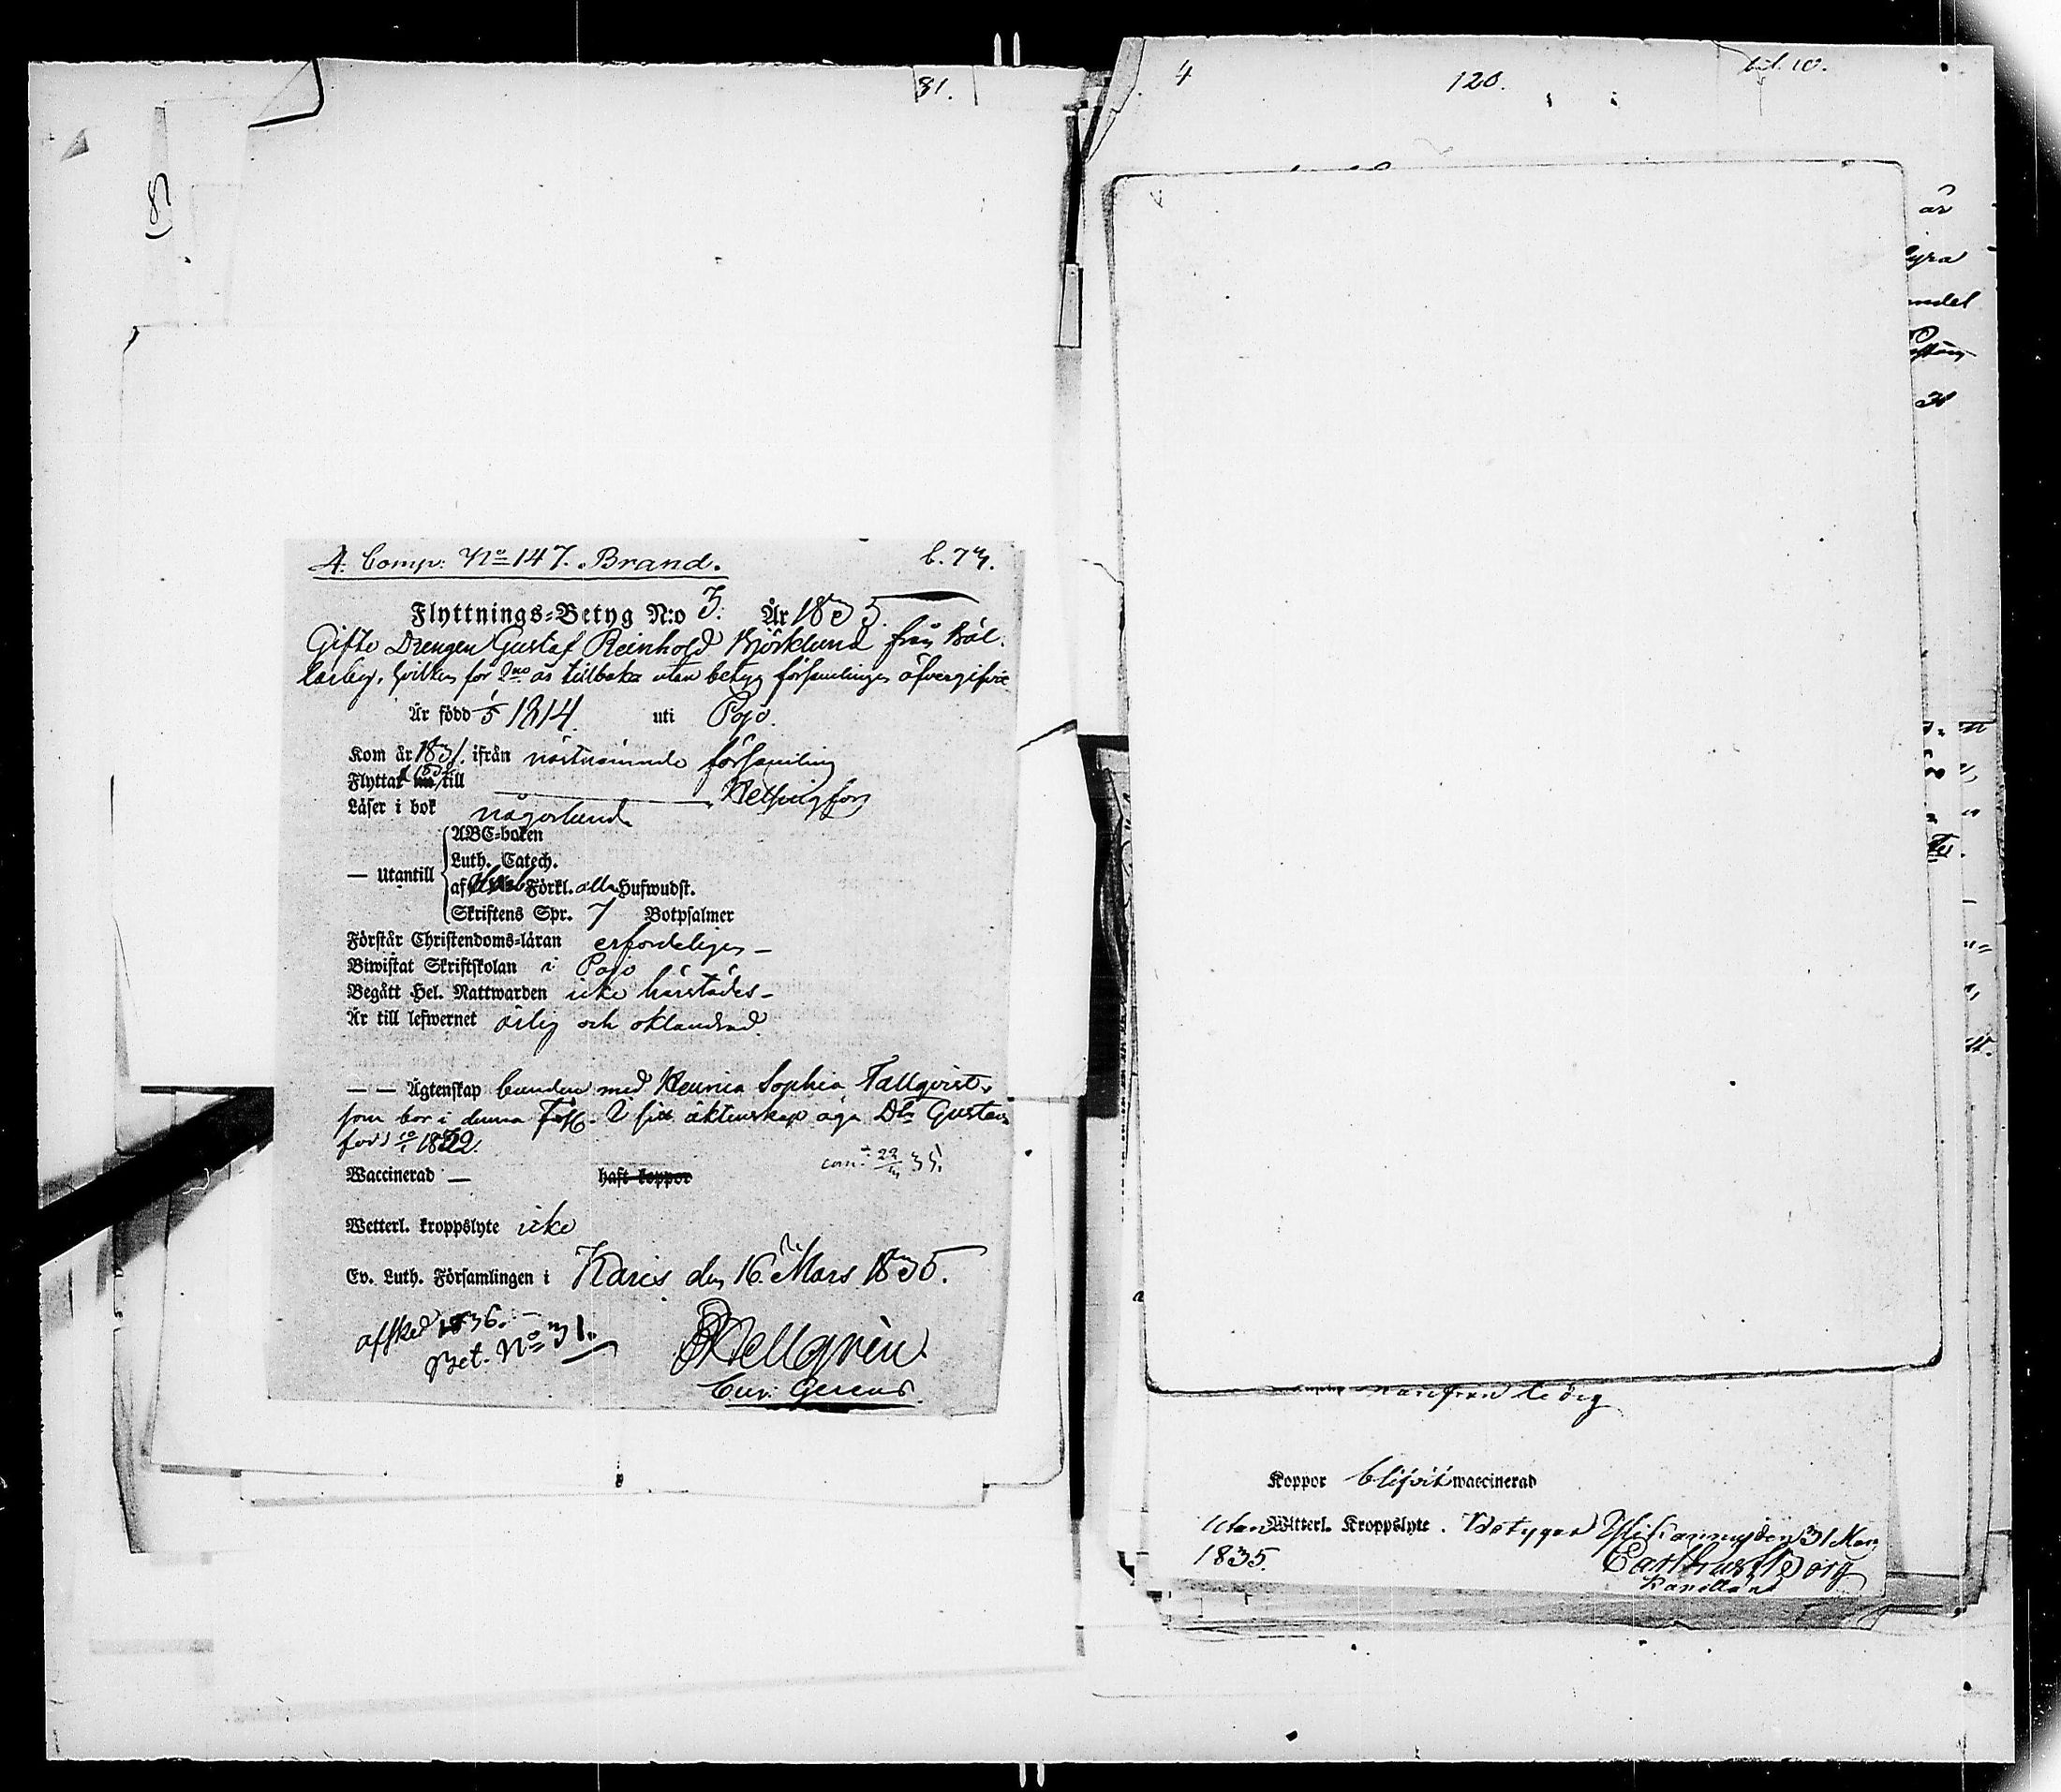 81.
A. Comp. No 147. Brand.
b. 73.
Flyttnings-Betyg N:o 3. År 1835.
Gifte Drengen Gustaf Reinhold Björklund från Böl-
larby, hvilken för 2ne år tillbaka utan betyg församlingen öfvergifvit
Är född 1/5 1814. uti Pojo.
Kom år 1831. ifrån nästnämnde församling
Flyttar till Helsingfors
Läser i bok någorlunda
ABC-boken
Luth. Catech.
— Utantill
af Förkl. alla Hufwudst.
Skriftens Spr. 7 Botpsalmer
Förstår Christendoms-läran erforderligen —
Biwistat Skriftskolan i Pojo
Begått Hel. Nattwarden icke härstädes —
Är till lefwernet ärlig och oklandrad
— — Ägtenskap bunden med Henrica Sophia Tallqvist,
som bor i denna Förs. I sitt äktenskap äga Dtr Gustava
född 10/1 1832.
Waccinerad — haft koppor
Wetterl. kroppslyte icke
Ev. Luth. Församlingen i Karis den 16 Mars 1835.
afsked 1836.
Bet. No 31.
Hellgrén
Cur. Gerens
4
120.
bil. 10.
år
andel
Koppor blifvit waccinerad
Utan Witterl. Kroppslyte. Betygas den 31 Mars
1835.